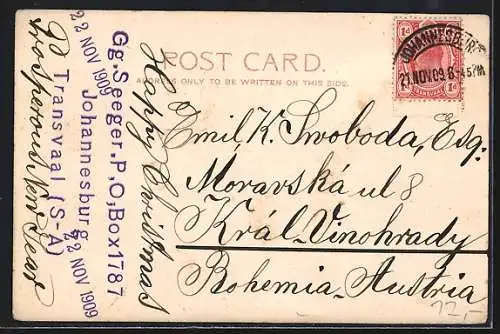 POST CARD.
ADDRESS ONLY TO BE WRITTEN ON THIS SIDE.
JOHANNESBURG
23 NOV. 09. 8-45PM
1d 1d
TRANSVAAL
Emil K. Swoboda, Esq:
Moravská ul 8
Král-Vinohrady
Bohemia-Austria
12,-
Happy Christmas
Gg. Seeger. P,O, Box 1787
Johannesburg
Transvaal (S-A)
22 NOV 1909
22 NOV 1909
Prosperous New Year